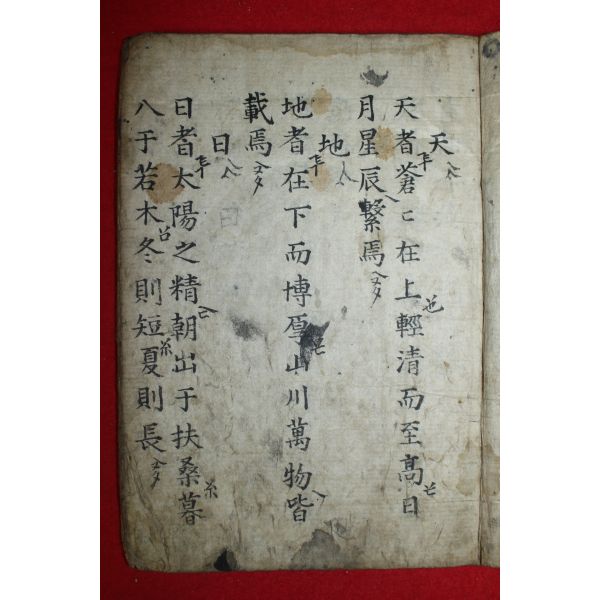 天
天者蒼〻在上輕清而至髙日
月星辰繫焉
地
地者在下而博厚山川萬物皆
載焉
日
日者太陽之精朝出于扶桑暮
入于若木冬則短夏則長